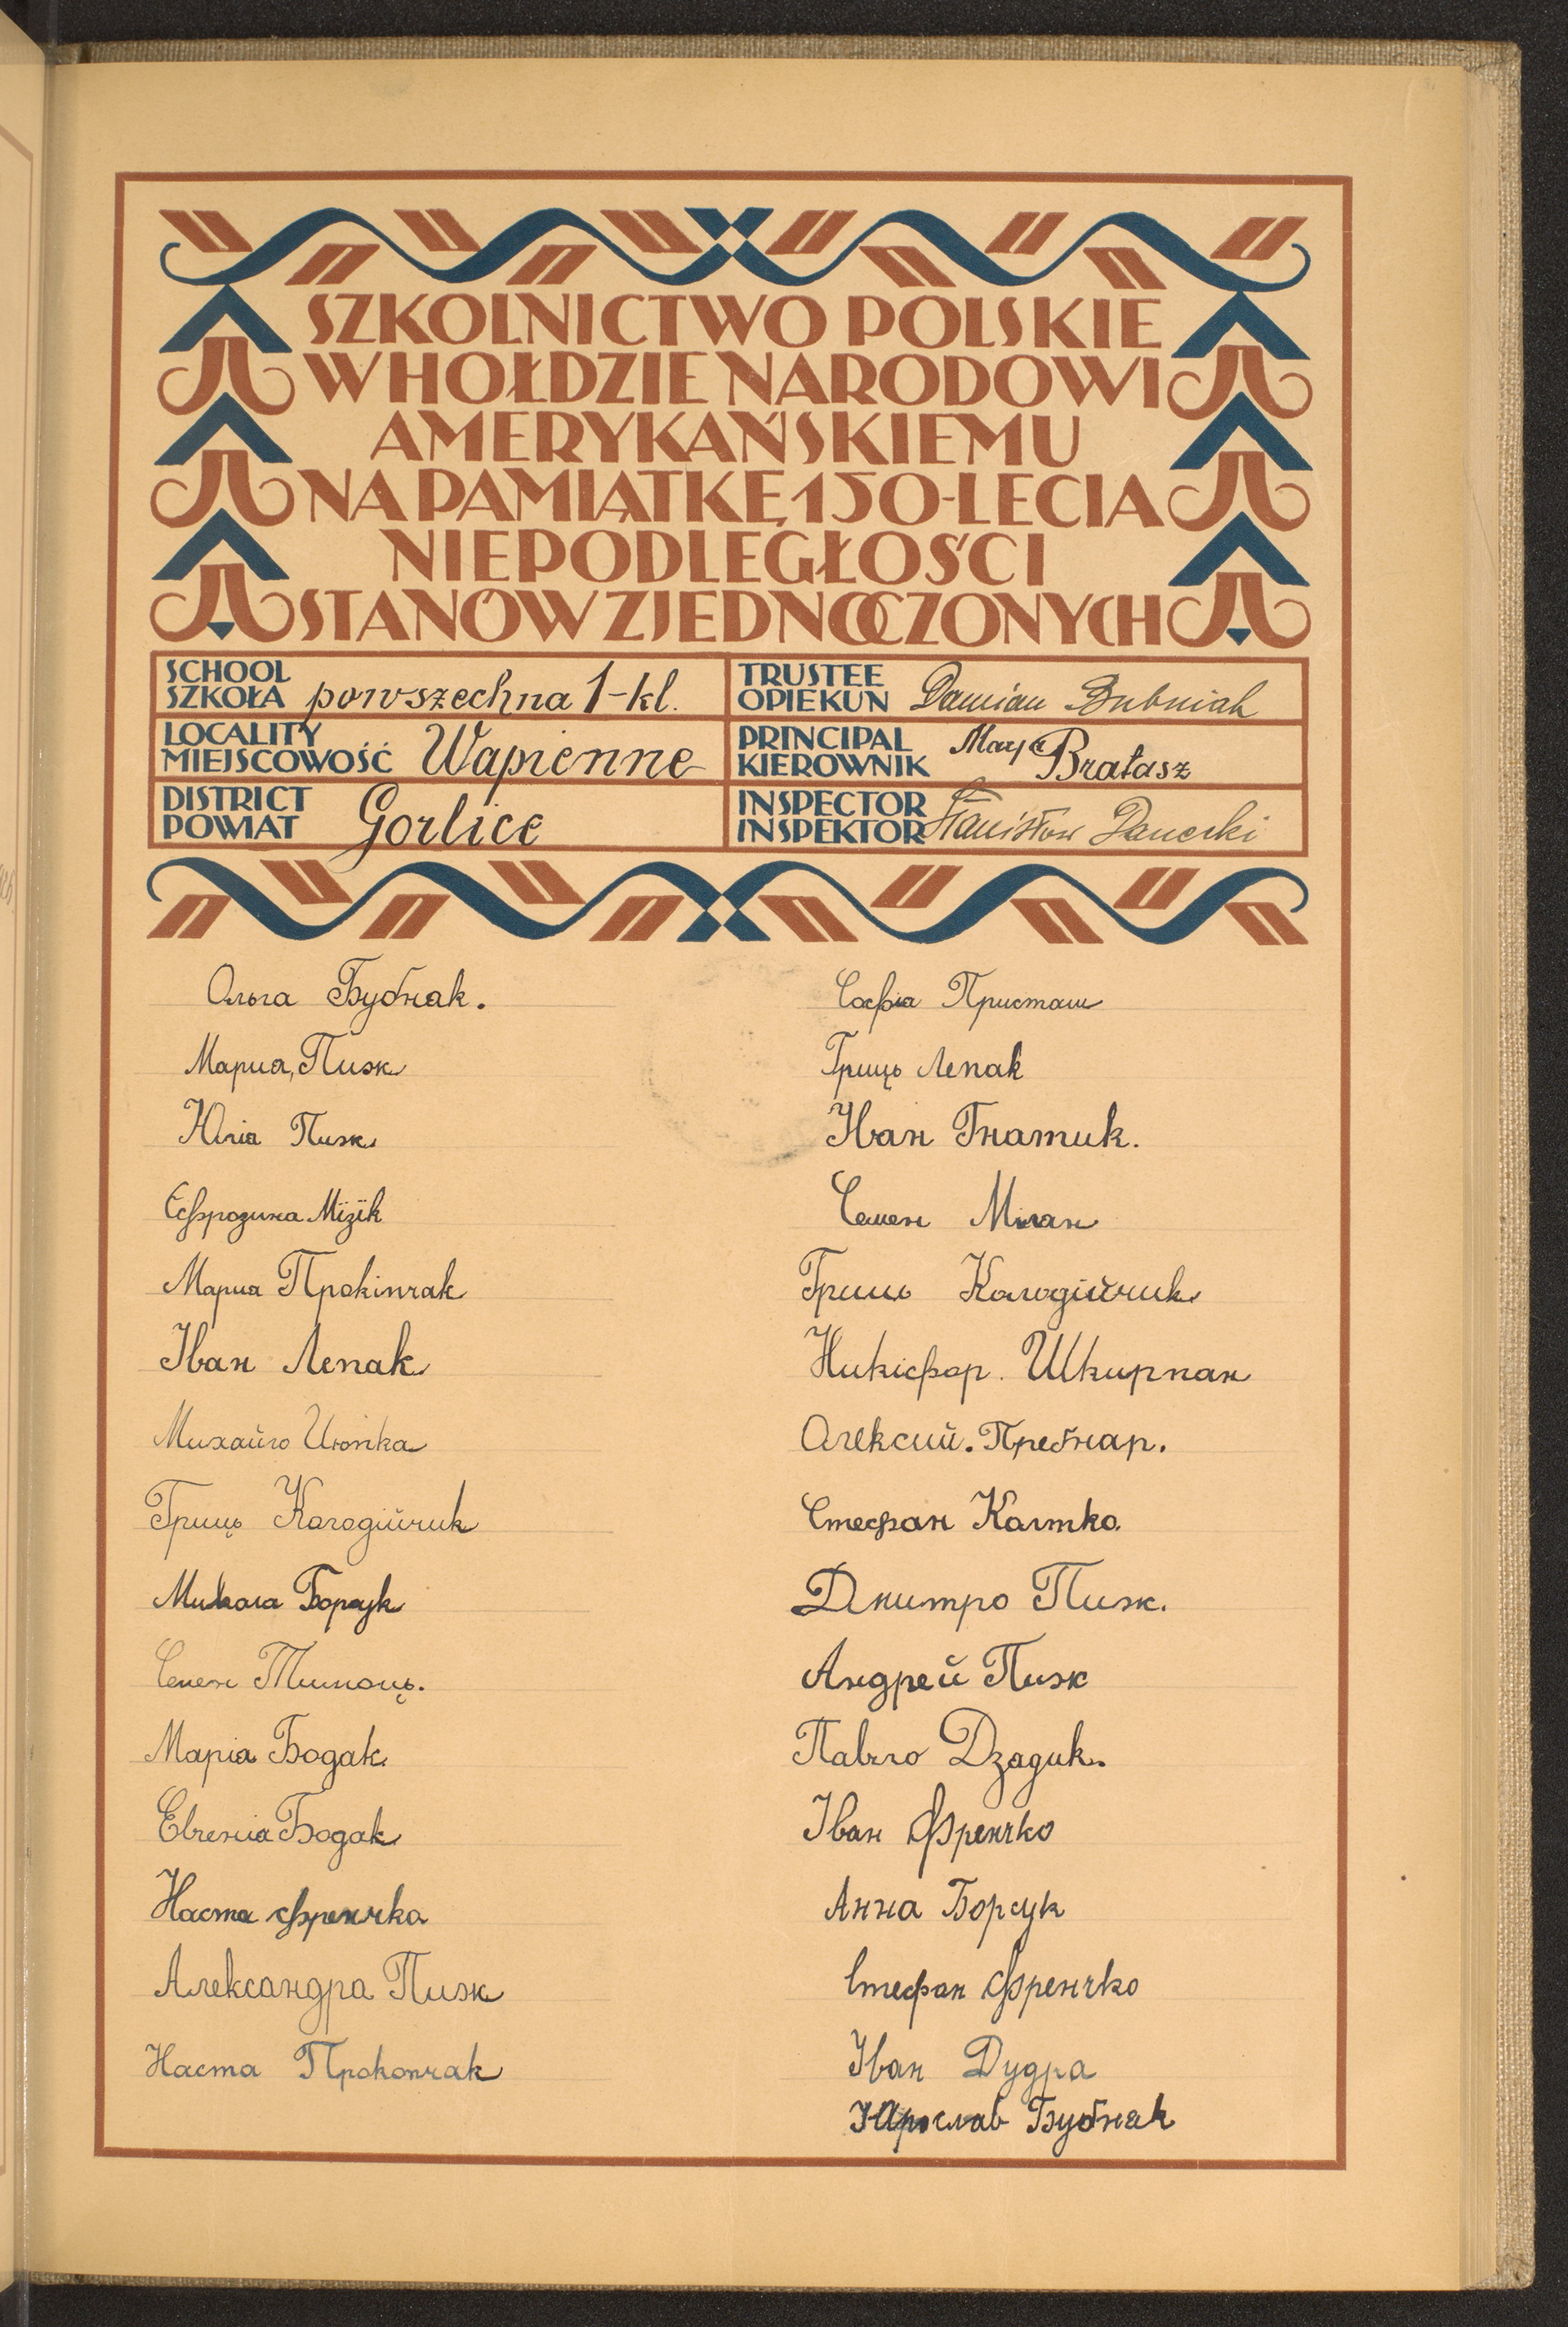 SZKOLNICTWO POLSKIE
W HOŁDZIE NARODOWI
AMERYKAŃSKIEMU
NA PAMIĄTKĘ 150-LECIA
NIEPODLEGŁOŚCI
STANÓW ZJEDNOCZONYCH
SCHOOL
SZKOŁA powszechna 1-kl.
LOCALITY
MIEJSCOWOŚĆ Wapienne
DISTRICT
POWIAT Gorlice
TRUSTEE
OPIEKUN Damian Bubniak
PRINCIPAL
KIEROWNIK Marya Bratasz
INSPECTOR
INSPEKTOR Stanisław
Ольга Бубнак.
Мариа, Пиж
Юліа Пиж
Єфрозина Мїзїк
Мариа Прокіпчак
Іван Лепак
Михайло
Гриць Колодійчик
Микола Борсук
Семен Тимоць.
Маріа Бодак
Евгеніа Бодак
Наста Френчка
Александра Пиж
Наста Прокопчак
Софіа Присташ
Гриць Лепак
Иван Гнатик.
Семен Мілан
Гриць Колодійчик
Никіфор. Шкирпан
Олексий. Пребнар.
Стефан Калтко.
Дмитро Пиж.
Андрей Пиж
Павло Дзадик.
Іван Френчко
Анна Борсук
Стефан Френчко
Іван Дудра
Ярослав Бубнак